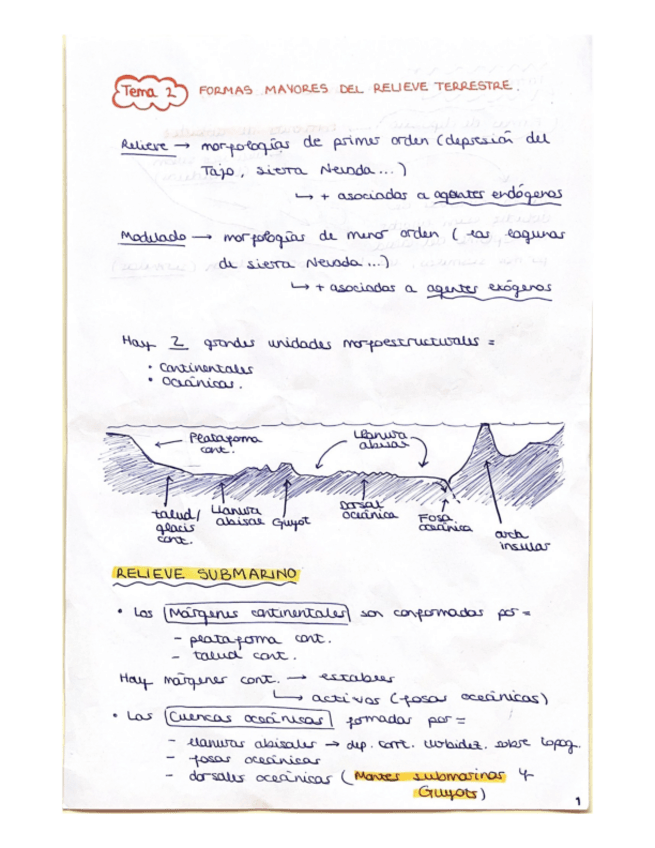 Tema 2 FORMAS MAYORES DEL RELIEVE TERRESTRE.
Relieve → morfologías de primer orden (depresión del
Tajo, Sierra Nevada...)
↳ + asociadas a agentes endógenos
Modelado → morfologías de menor orden (las lagunas
de Sierra Nevada...)
↳ + asociadas a agentes exógenos
Hay 2 grandes unidades morfoestructurales =
• Continentales
• Oceánicas.
Plataforma cont.
Llanura abisal
talud/ glacis cont.
Llanura abisal
Guyot
Dorsal oceánica
Fosa oceánica
arch insular
RELIEVE SUBMARINO
• Los Márgenes continentales son conformados por =
- plataforma cont.
- talud cont.
Hay márgenes cont. → estables
↳ activos (fosas oceánicas)
• Las Cuencas oceánicas formadas por =
- llanuras abisales → dep. corr. turbidez. sobre topog.
- fosas oceánicas
- dorsales oceánicas (Montes submarinos y
Guyots)
1